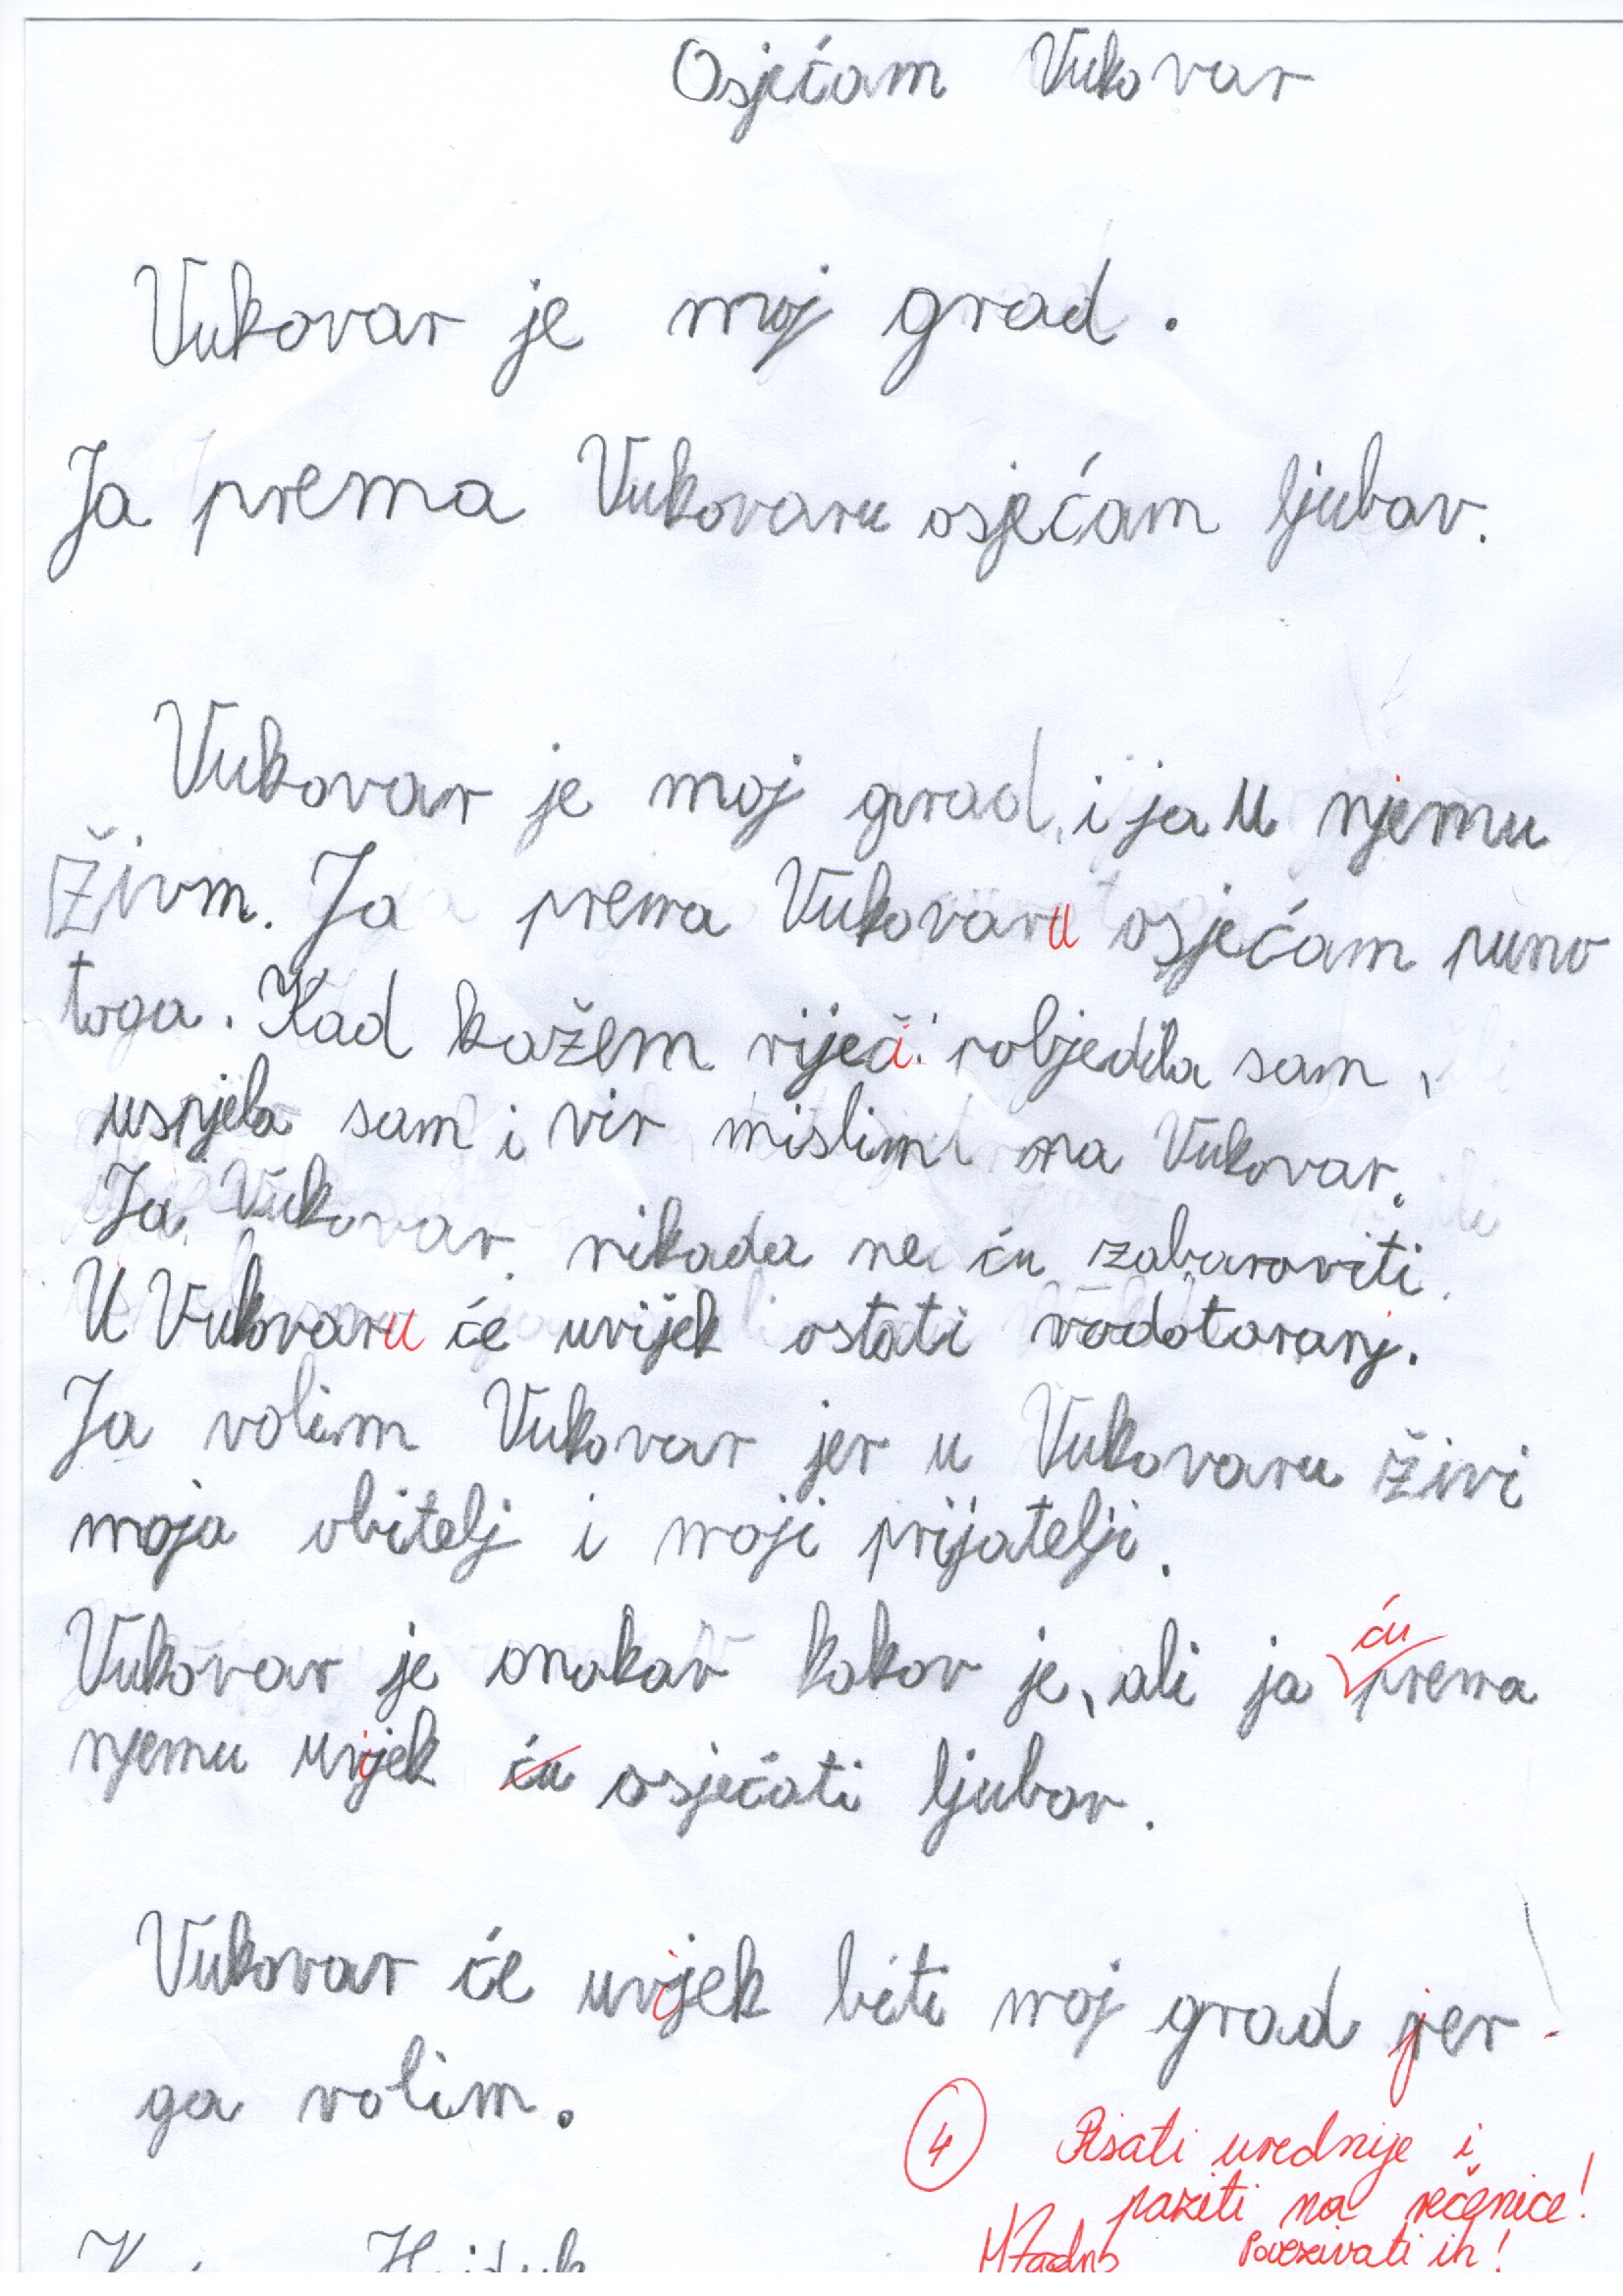 Osjećam Vukovar
Vukovar je moj grad.
Ja prema Vukovaru osjećam ljubav.
Vukovar je moj grad, i ja u njemu
živm. Ja prema Vukovaru osjećam puno
toga. Kad kažem riječi: pobjedila sam,
uspjela sam i vir mislim na Vukovar.
Ja Vukovar nikada ne ću zaboraviti.
U Vukovaru će uvijek ostati vodotoranj.
Ja volim Vukovar jer u Vukovaru živi
moja obitelj i moji prijatelji.
ću
Vukovar je onakav kakav je, ali ja prema
njemu uvijek ću osjećati ljubav.
Vukovar će uvijek biti moj grad jer
ga volim.
4 Pisati urednije i
paziti na rečenice!
Povezivati ih!